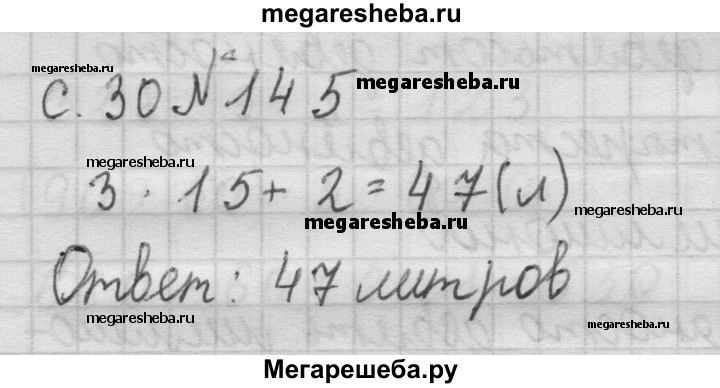 megaresheba.ru
megaresheba.ru
с. 30 № 145
megaresheba.ru
megaresheba.ru
3 · 15 + 2 = 47 (л)
megaresheba.ru
megaresheba.ru
Ответ: 47 литров
megaresheba.ru
megaresheba.ru
Мегарешеба.ру